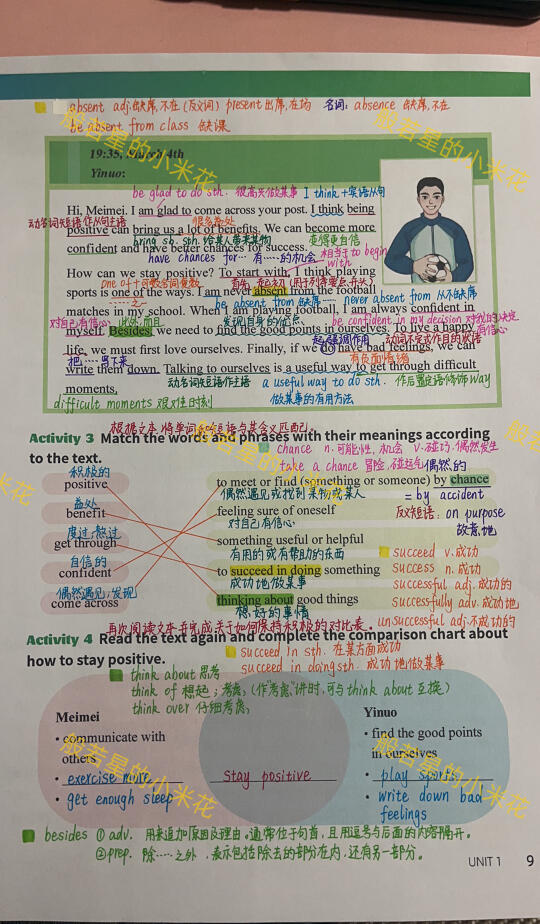 absent adj.缺席,不在(反义词) present 出席,在场 名词: absence 缺席,不在
be absent from class 缺课
般若星的小米花
19:35, March 4th
Yinuo:
be glad to do sth. 很高兴做某事 I think +宾语从句
Hi, Meimei. I am glad to come across your post. I think being
动名词短语作从句主语 很多益处
positive can bring us a lot of benefits. We can become more
bring sb. sth. 给某人带来某物 变得更自信
confident and have better chances for success.
have chances for… 有……的机会 相当于 to begin with
How can we stay positive? To start with, I think playing
one of + 可数名词复数 首先,起初(用于列举要点,开头)
sports is one of the ways. I am never absent from the football
……之一 be absent from 缺席…… never absent from 从不缺席
matches in my school. When I am playing football, I am always confident in
对自己有信心 此外,而且 发现自身的优点 be confident in my decision 对我的决定有信心
myself. Besides, we need to find the good points in ourselves. To live a happy
起强调作用 动词不定式作目的状语
life, we must first love ourselves. Finally, if we do have bad feelings, we can
把……写下来 有负面情绪
write them down. Talking to ourselves is a useful way to get through difficult
moments. 动名词短语作主语 a useful way to do sth. 作后置定语修饰way
difficult moments 艰难时刻 做某事的有用方法
根据文本,将单词和短语与其含义匹配。
Activity 3 Match the words and phrases with their meanings according
to the text.
chance n. 可能性,机会 v. 碰巧,偶然发生
take a chance 冒险,碰运气 偶然的
积极的
positive to meet or find (something or someone) by chance
偶然遇见或找到某物或某人 = by accident
益处 反义短语: on purpose
benefit feeling sure of oneself
对自己有信心 故意地
度过;熬过
get through something useful or helpful
有用的或有帮助的东西 succeed v.成功
自信的
confident to succeed in doing something success n.成功
成功地做某事 successful adj.成功的
偶然遇见;发现
come across thinking about good things successfully adv.成功地
想,好的事情 unsuccessful adj.不成功的
再次阅读文本并完成关于如何保持积极的对比表。
Activity 4 Read the text again and complete the comparison chart about
how to stay positive.
succeed in sth. 在某方面成功
succeed in doing sth. 成功地做某事
think about 思考
think of 想起;考虑(作"考虑"讲时,可与 think about 互换)
think over 仔细考虑
Meimei
• communicate with
others
• exercise more
• get enough sleep
Stay positive
Yinuo
• find the good points
in ourselves
• play sports
• write down bad
feelings
besides ① adv. 用来追加原因或理由。通常位于句首,且用逗号与后面的内容隔开。
② prep. 除……之外,表示包括除去的部分在内,还有另一部分。
UNIT 1 9